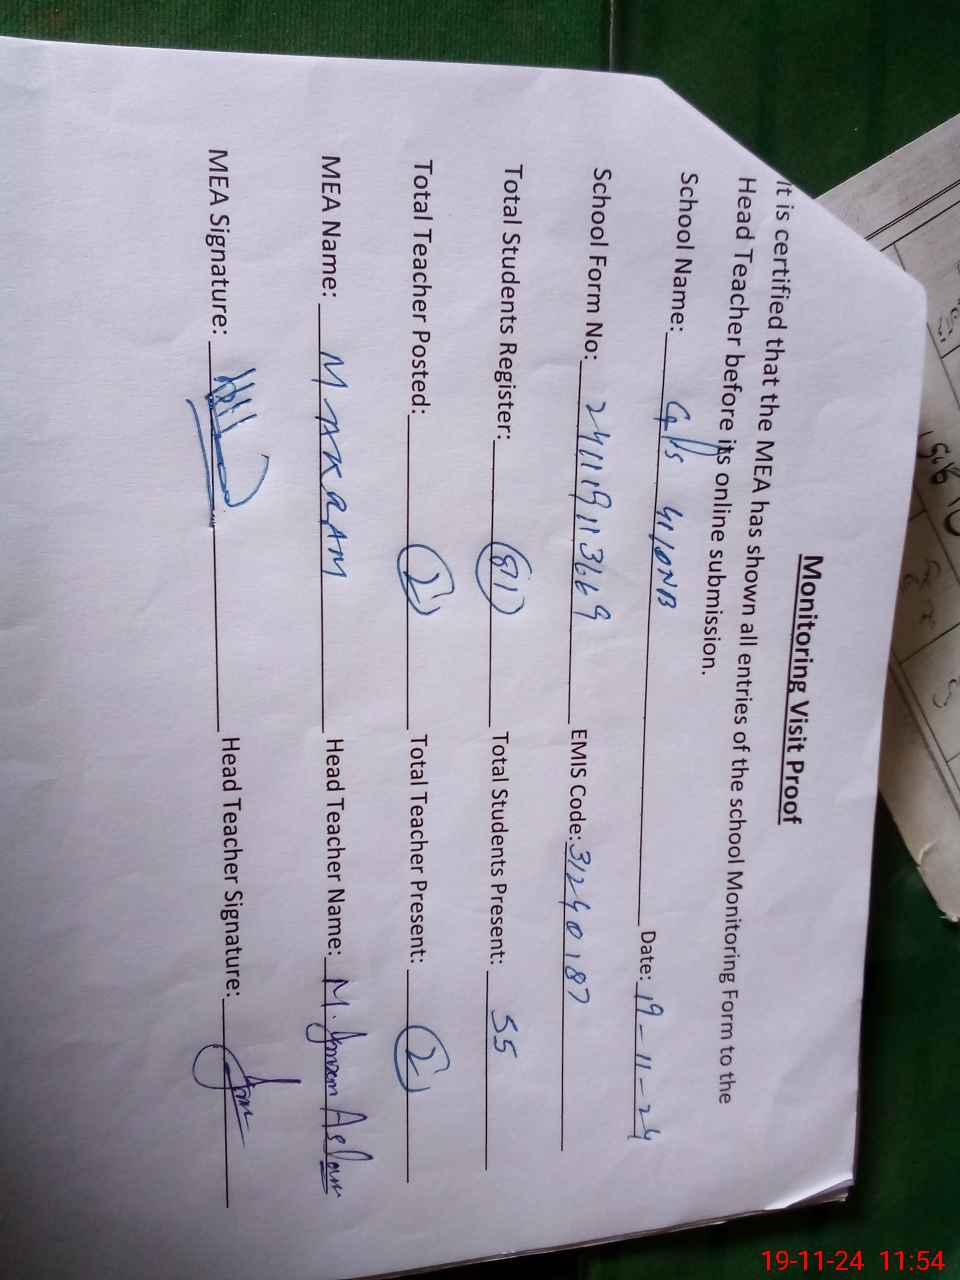 Monitoring Visit Proof
It is certified that the MEA has shown all entries of the school Monitoring Form to the
Head Teacher before its online submission.
School Name: GPS 41/DNB Date: 19-11-24
School Form No: 241119113669 EMIS Code: 31240187
Total Students Register: 81 Total Students Present: 55
Total Teacher Posted: 2 Total Teacher Present: 2
MEA Name: M AKRAM Head Teacher Name: M. Aslam
MEA Signature: Head Teacher Signature:
19-11-24 11:54